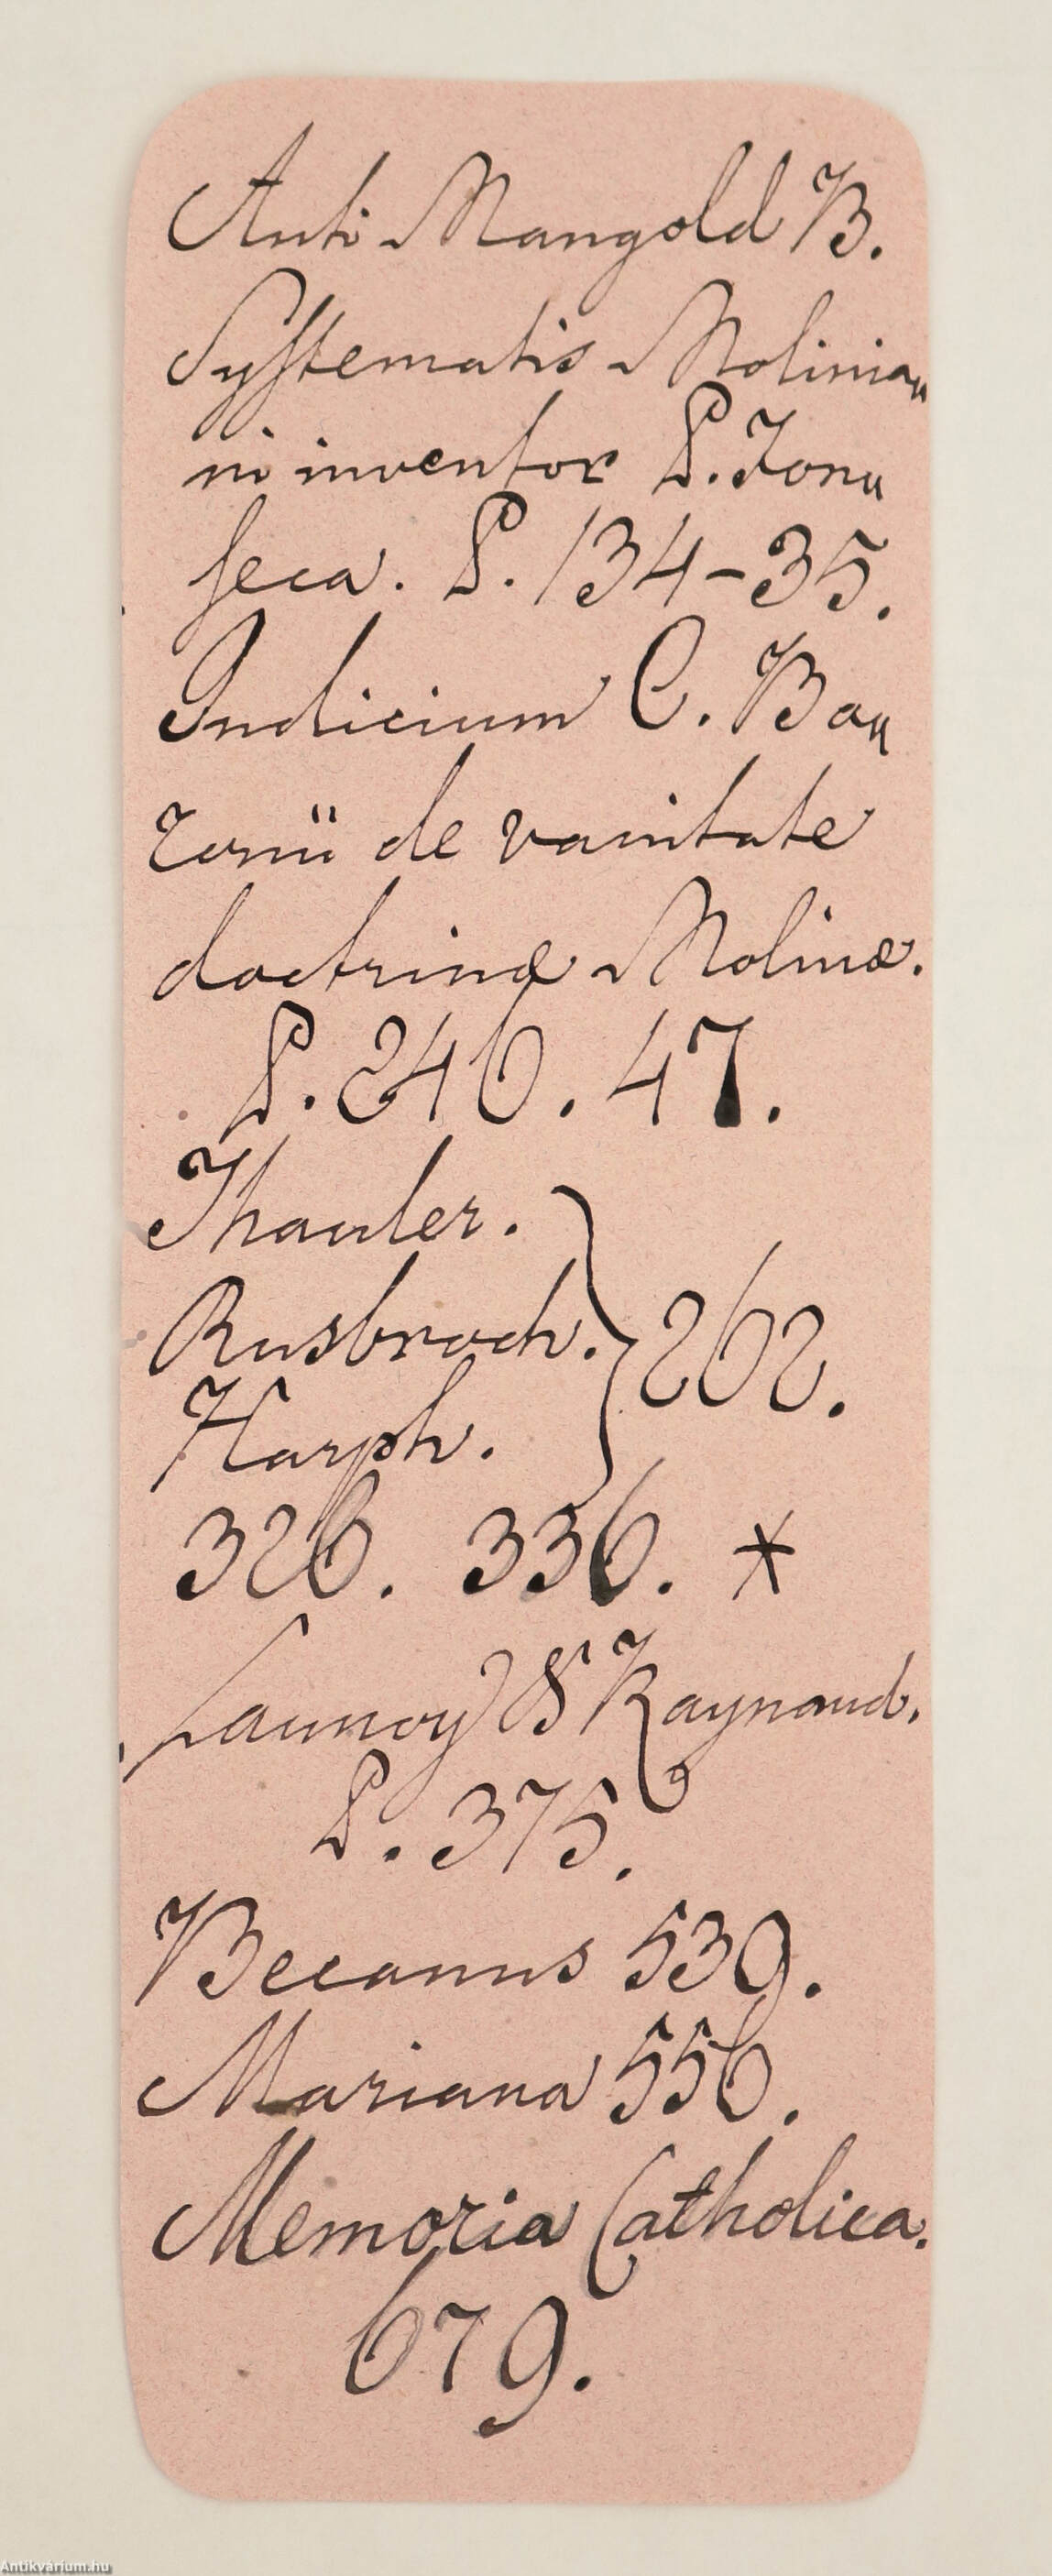 Anti-Mangold B.
Systematis Molinia„
ni inventor P. Fon„
seca. P. 134-35.
Iudicium C. Ba„
ronii de vanitate
doctrinæ Molinæ.
P. 246. 47.
Thauler.
Rusbroch. } 262.
Harph.
326. 336. *
Launoy & Raynaud.
P. 375.
Becanus 539.
Mariana 556.
Memoria Catholica.
679.
Antikvárium.hu